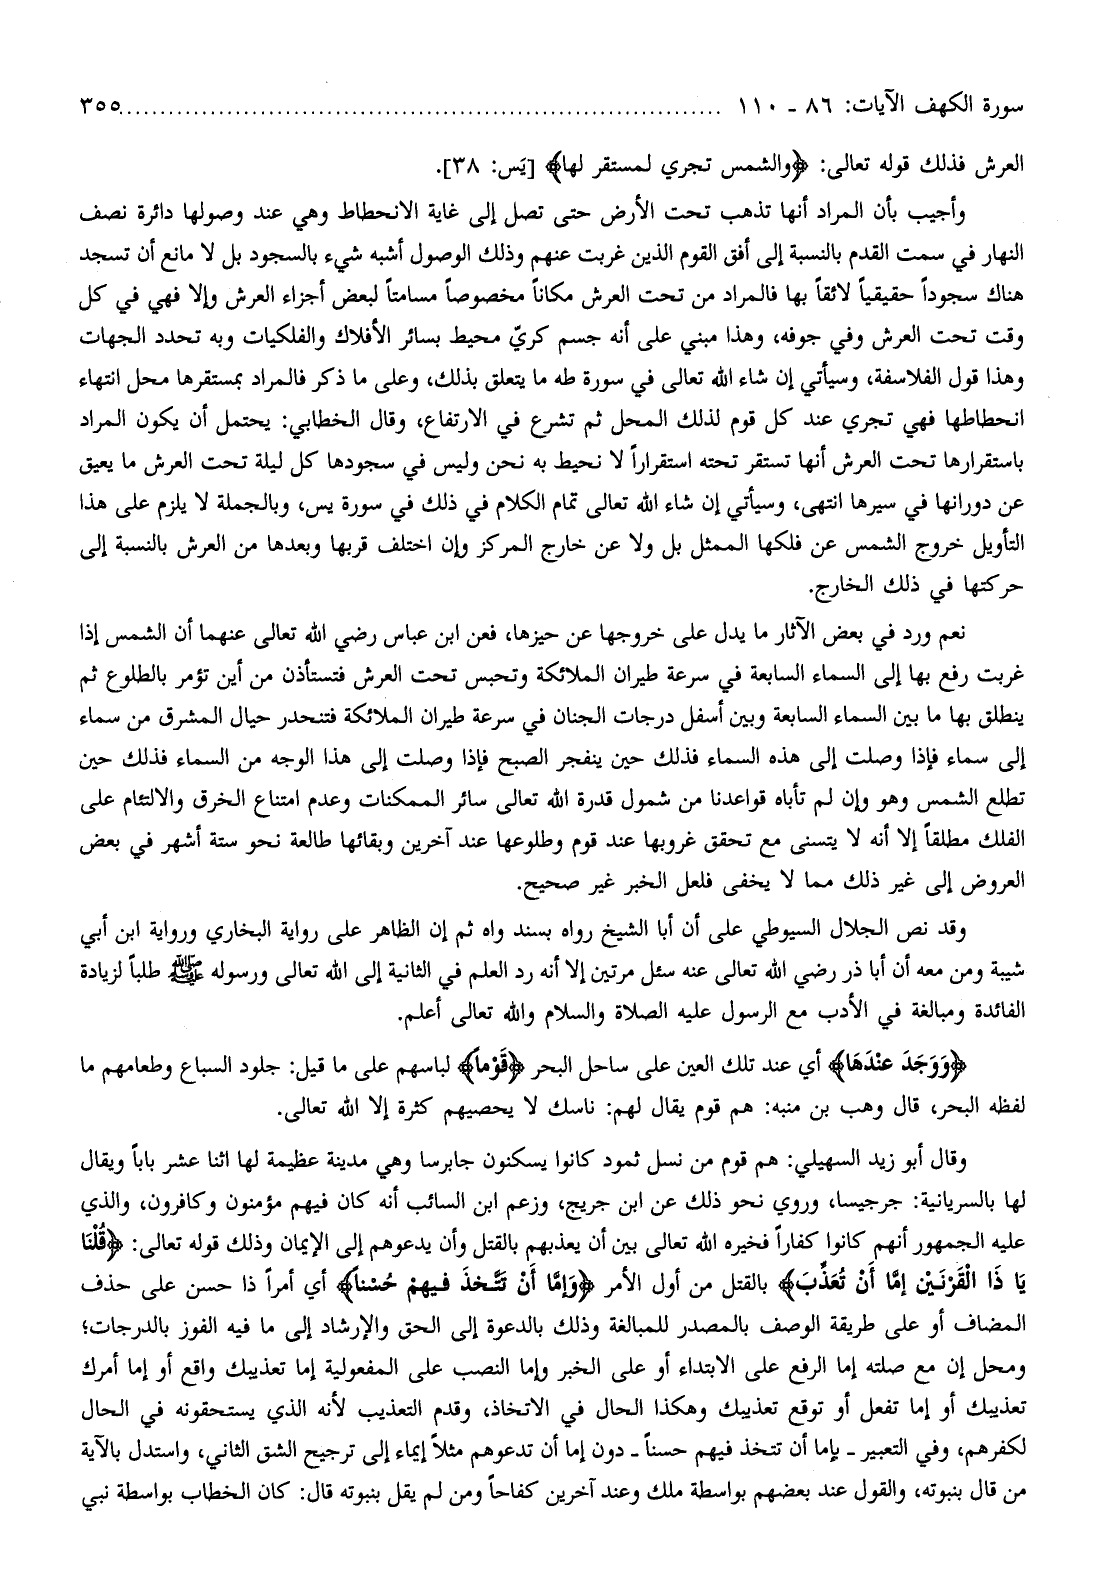 سورة الكهف الآيات: ٨٦ - ١١٠ ........................................................................ ٣٥٥
العرش فذلك قوله تعالى: ﴿والشمس تجري لمستقر لها﴾ [يَس: ٣٨].
وأجيب بأن المراد أنها تذهب تحت الأرض حتى تصل إلى غاية الانحطاط وهي عند وصولها دائرة نصف
النهار في سمت القدم بالنسبة إلى أفق القوم الذين غربت عنهم وذلك الوصول أشبه شيء بالسجود بل لا مانع أن تسجد
هناك سجوداً حقيقياً لائقاً بها فالمراد من تحت العرش مكاناً مخصوصاً مسامتاً لبعض أجزاء العرش وإلا فهي في كل
وقت تحت العرش وفي جوفه، وهذا مبني على أنه جسم كريّ محيط بسائر الأفلاك والفلكيات وبه تحدد الجهات
وهذا قول الفلاسفة، وسيأتي إن شاء الله تعالى في سورة طه ما يتعلق بذلك، وعلى ما ذكر فالمراد بمستقرها محل انتهاء
انحطاطها فهي تجري عند كل قوم لذلك المحل ثم تشرع في الارتفاع، وقال الخطابي: يحتمل أن يكون المراد
باستقرارها تحت العرش أنها تستقر تحته استقراراً لا نحيط به نحن وليس في سجودها كل ليلة تحت العرش ما يعيق
عن دورانها في سيرها انتهى، وسيأتي إن شاء الله تعالى تمام الكلام في ذلك في سورة يس، وبالجملة لا يلزم على هذا
التأويل خروج الشمس عن فلكها الممثل بل ولا عن خارج المركز وإن اختلف قربها وبعدها من العرش بالنسبة إلى
حركتها في ذلك الخارج.
نعم ورد في بعض الآثار ما يدل على خروجها عن حيزها، فعن ابن عباس رضي الله تعالى عنهما أن الشمس إذا
غربت رفع بها إلى السماء السابعة في سرعة طيران الملائكة وتحبس تحت العرش فتستأذن من أين تؤمر بالطلوع ثم
ينطلق بها ما بين السماء السابعة وبين أسفل درجات الجنان في سرعة طيران الملائكة فتنحدر حيال المشرق من سماء
إلى سماء فإذا وصلت إلى هذه السماء فذلك حين ينفجر الصبح فإذا وصلت إلى هذا الوجه من السماء فذلك حين
تطلع الشمس وهو وإن لم تأباه قواعدنا من شمول قدرة الله تعالى سائر الممكنات وعدم امتناع الخرق والالتئام على
الفلك مطلقاً إلا أنه لا يتسنى مع تحقق غروبها عند قوم وطلوعها عند آخرين وبقائها طالعة نحو ستة أشهر في بعض
العروض إلى غير ذلك مما لا يخفى فلعل الخبر غير صحيح.
وقد نص الجلال السيوطي على أن أبا الشيخ رواه بسند واه ثم إن الظاهر على رواية البخاري ورواية ابن أبي
شيبة ومن معه أن أبا ذر رضي الله تعالى عنه سئل مرتين إلا أنه رد العلم في الثانية إلى الله تعالى ورسوله ﷺ طلباً لزيادة
الفائدة ومبالغة في الأدب مع الرسول عليه الصلاة والسلام والله تعالى أعلم.
﴿وَوَجَدَ عنْدَهَا﴾ أي عند تلك العين على ساحل البحر ﴿قَوْماً﴾ لباسهم على ما قيل: جلود السباع وطعامهم ما
لفظه البحر، قال وهب بن منبه: هم قوم يقال لهم: ناسك لا يحصيهم كثرة إلا الله تعالى.
وقال أبو زيد السهيلي: هم قوم من نسل ثمود كانوا يسكنون جابرسا وهي مدينة عظيمة لها اثنا عشر باباً ويقال
لها بالسريانية: جرجيسا، وروي نحو ذلك عن ابن جريج، وزعم ابن السائب أنه كان فيهم مؤمنون وكافرون، والذي
عليه الجمهور أنهم كانوا كفاراً فخيره الله تعالى بين أن يعذبهم بالقتل وأن يدعوهم إلى الإيمان وذلك قوله تعالى: ﴿قُلْنَا
يَا ذَا الْقَرْنَيْن إمَّا أَنْ تُعَذِّبَ﴾ بالقتل من أول الأمر ﴿وَإمَّا أَنْ تَتَّخذَ فيهمْ حُسْناً﴾ أي أمراً ذا حسن على حذف
المضاف أو على طريقة الوصف بالمصدر للمبالغة وذلك بالدعوة إلى الحق والإرشاد إلى ما فيه الفوز بالدرجات؛
ومحل إن مع صلته إما الرفع على الابتداء أو على الخبر وإما النصب على المفعولية إما تعذيبك واقع أو إما أمرك
تعذيبك أو إما تفعل أو توقع تعذيبك وهكذا الحال في الاتخاذ، وقدم التعذيب لأنه الذي يستحقونه في الحال
لكفرهم، وفي التعبير ـ بإما أن تتخذ فيهم حسناً ـ دون إما أن تدعوهم مثلاً إيماء إلى ترجيح الشق الثاني، واستدل بالآية
من قال بنبوته، والقول عند بعضهم بواسطة ملك وعند آخرين كفاحاً ومن لم يقل بنبوته قال: كان الخطاب بواسطة نبي